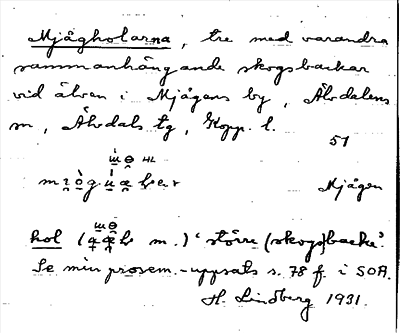 Mjågholarna, tre med varandra
sammanhängande skogsbackar
vid älven i Mjågens by, Älvdalens
sn, Älvdals tg, Kopp. l.
51
Mjågen
hol ( m.) 'större (skogs)backe'.
Se min prosem.-uppsats s. 78 f. i SOA.
H. Lindberg 1931.